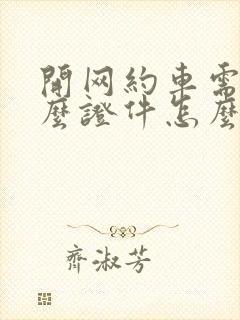 開网約車需
麼證件怎麼
齊淑芳